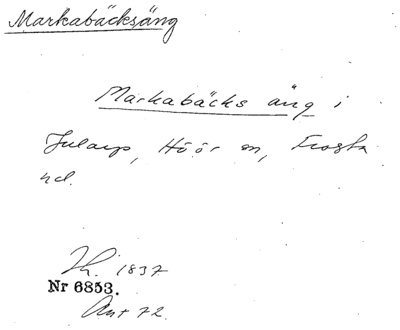 Markabäcksäng
Markabäcks äng i
Julaxp, Höör sn, Frosta
hd.
Th. 1837
Nr 6853.
Ant 72